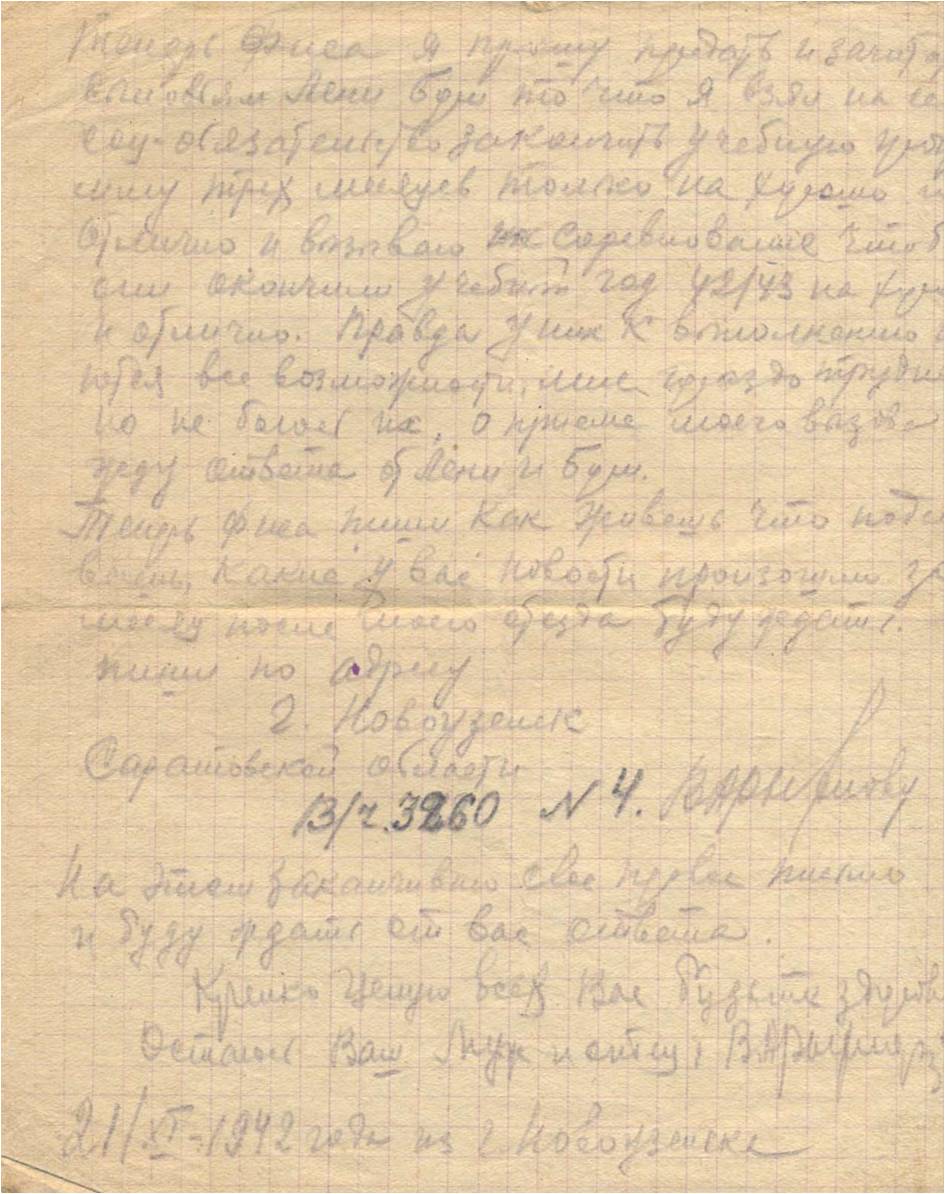 Теперь Фиса я прошу предать и зачита
сыновьям Лени Бори то что я взял на се
соц-обязательство закончить учебную прог
мму трех месяцев только на хорошо и
отлично и вызываю их соревнование чтоб
они окончили учебный год 42/43 на хор
и отлично. Правда у них к выполнению
ются все возможности, мне гораздо трудне
но не боюсь их, о приеме моего вызова
жду ответа от Лени и Бори.
Теперь Фиса пиши как живешь что поде
ваешь, какие у вас новости произошли
после моего отъезда буду ждать.
пиши по адресу
г. Новоузенск
Саратовской области
В/ч. 3260 N 4.
На этом заканчиваю свое первое письмо
и буду ждать от вас ответа.
Крепко целую всех Вас будьте здоров
Остаюсь Ваш Муж и отец
21/XI-1942 года из г Новоузенска